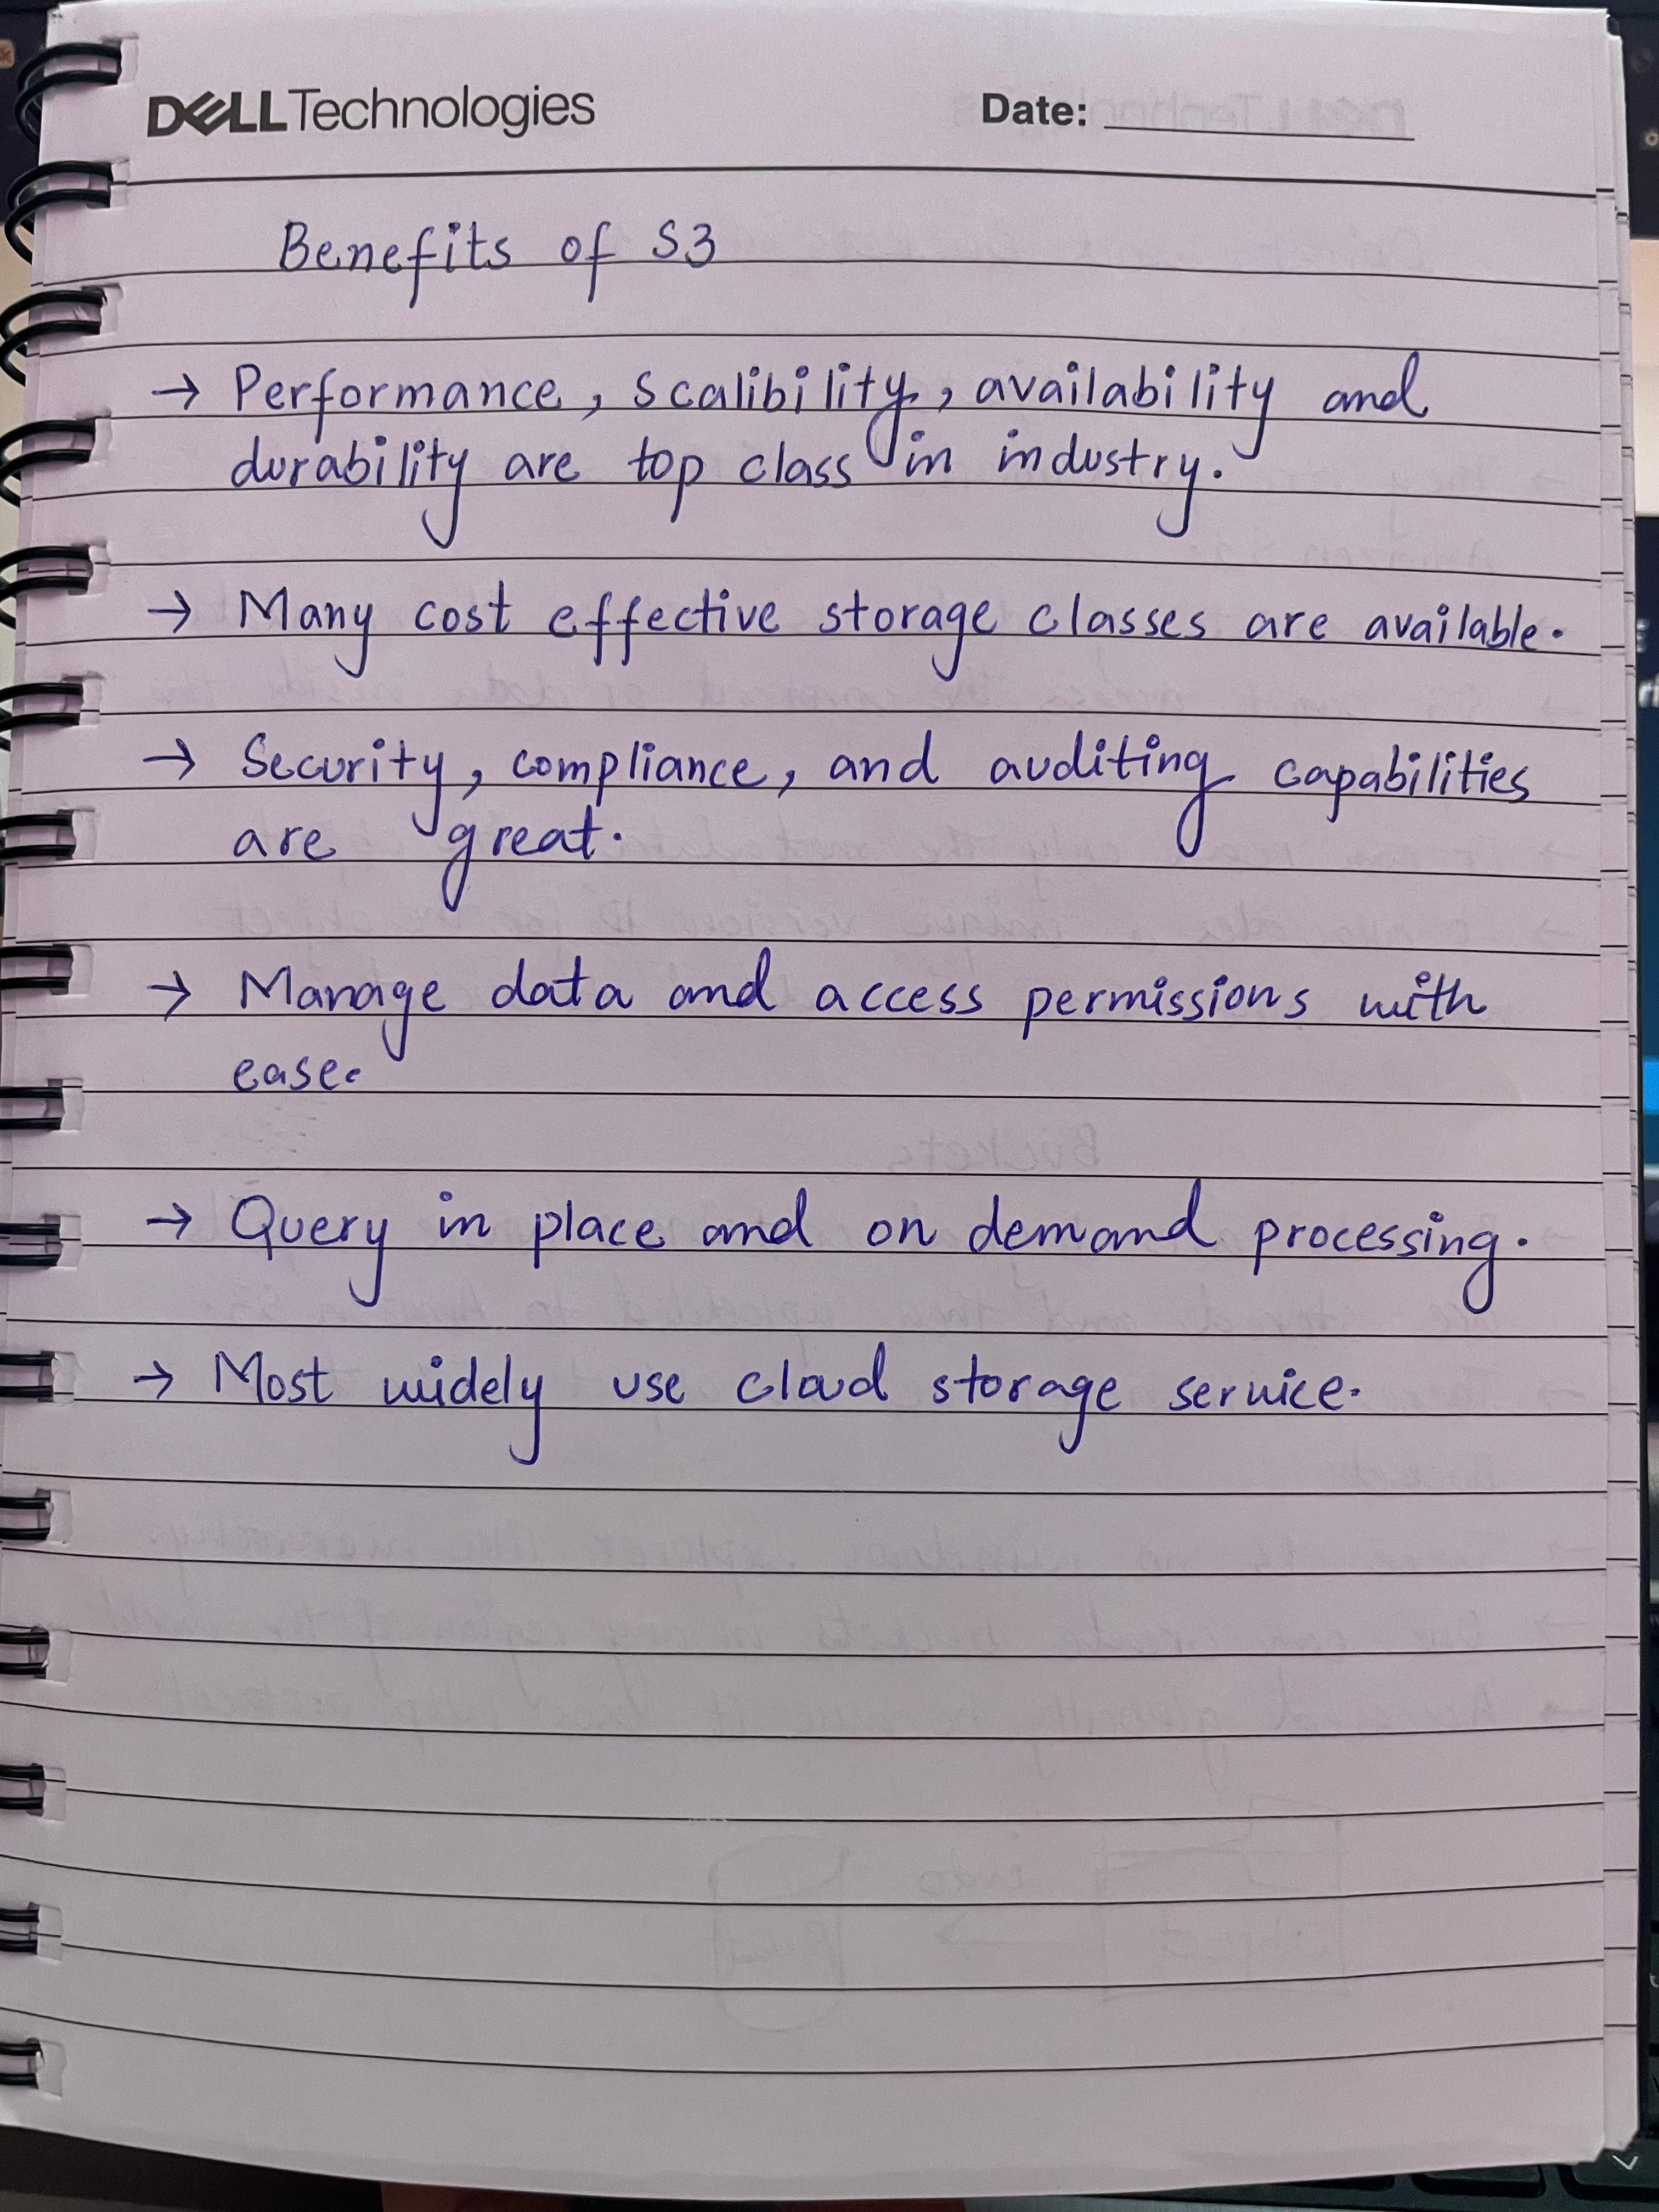 DELL Technologies Date:
Benefits of S3
→ Performance, scalibility, availability and
durability are top class in industry.
→ Many cost effective storage classes are available.
→ Security, compliance, and auditing capabilities
are great.
→ Manage data and access permissions with
ease.
→ Query in place and on demand processing.
→ Most widely use cloud storage service.